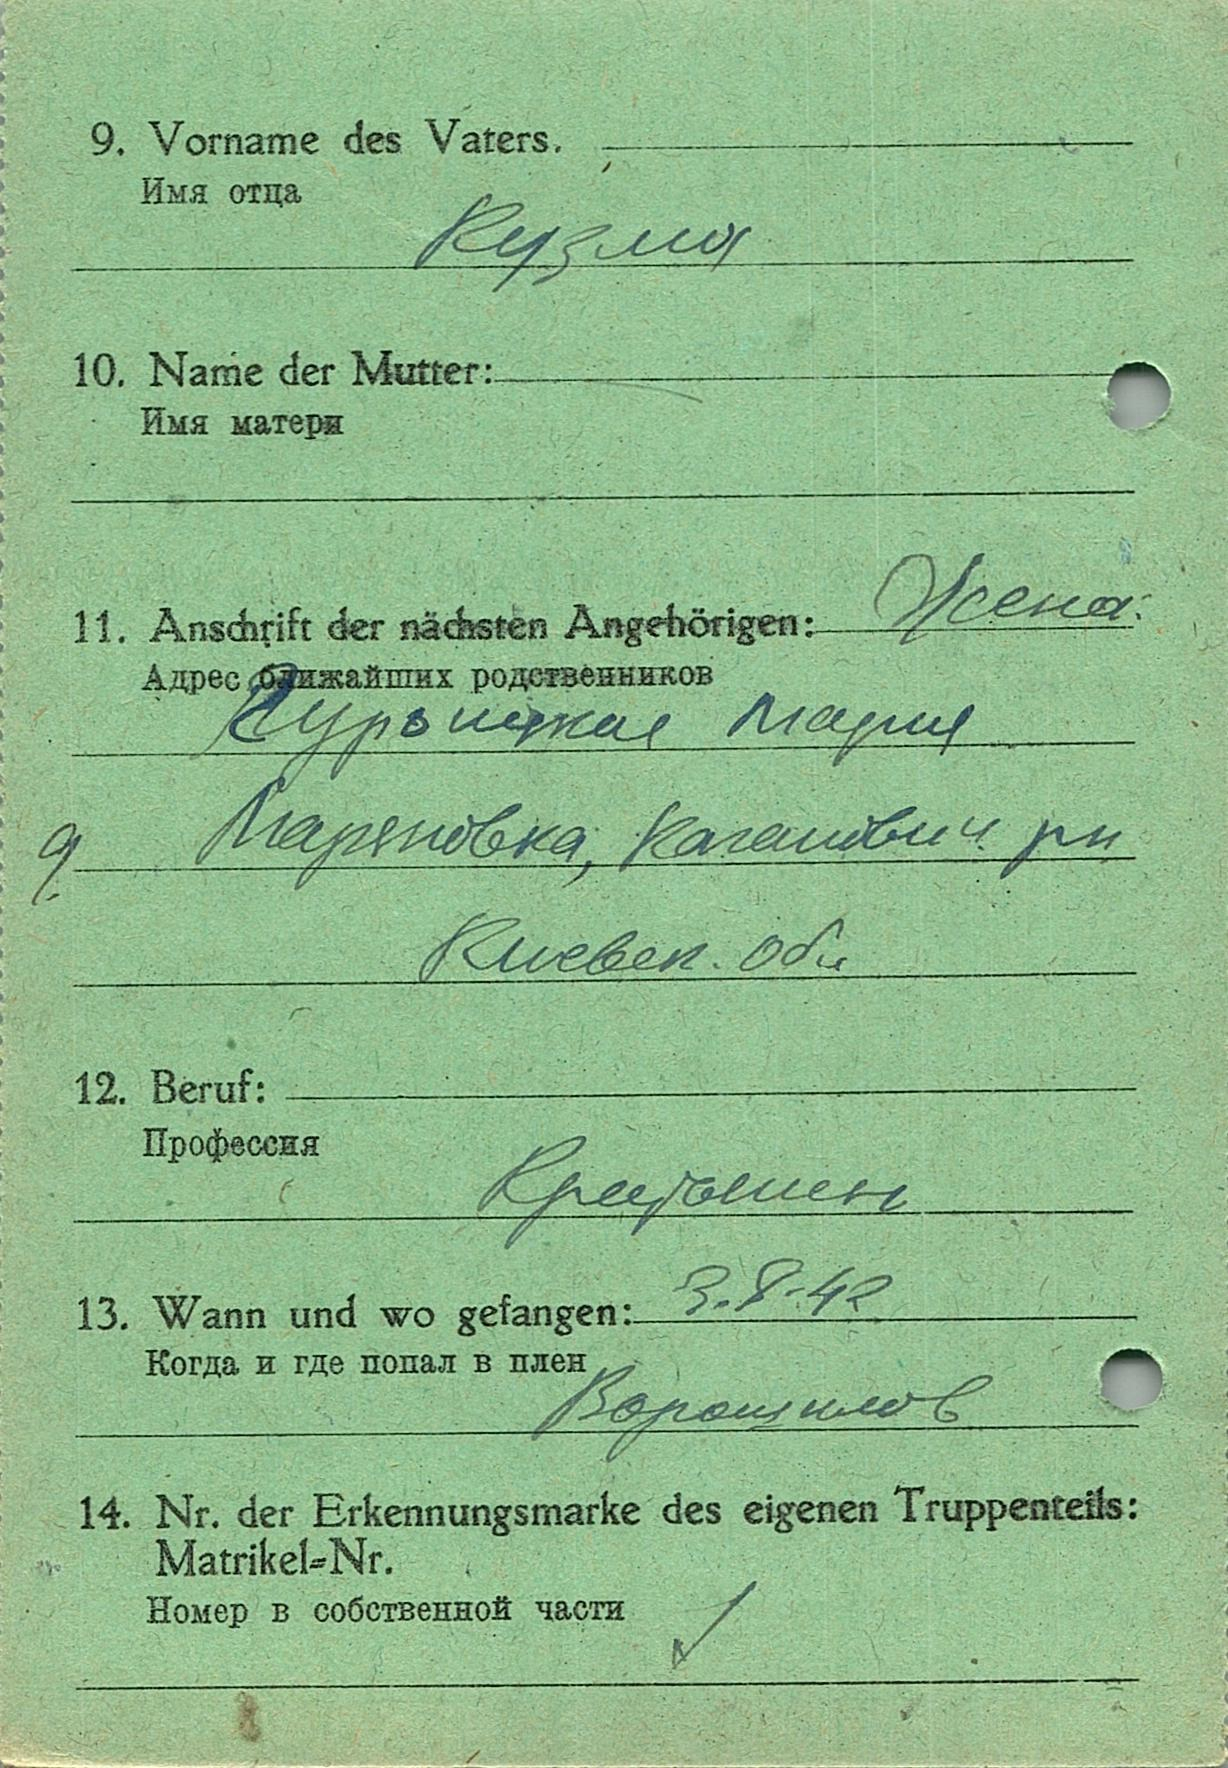 9. Vorname des Vaters.
Имя отца
Кузма
10. Name der Mutter:
Имя матери
11. Anschrift der nächsten Angehörigen: Жена
Адрес ближайших родственников
Мария
д. Маряновка, Каганович. рн
Киевск. обл
12. Beruf:
Профессия
13. Wann und wo gefangen: 3.8.42
Когда и где попал в плен
Ворошилов
14. Nr. der Erkennungsmarke des eigenen Truppenteils:
Matrikel-Nr.
Номер в собственной части